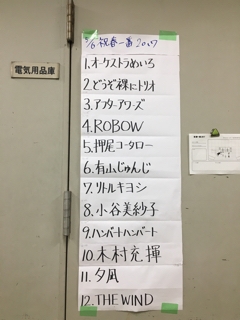 5/6 祝春一番2017
電気用品庫
1.オーケストラめいろ
2.どうぞ裸にトリオ
3.アフターアワーズ
4.ROBOW
5.押尾コータロー
6.有山じゅんじ
7.リトルキヨシ
8.小谷美紗子
9.ハンバートハンバート
10.木村充揮
11.夕凪
12.THE WIND